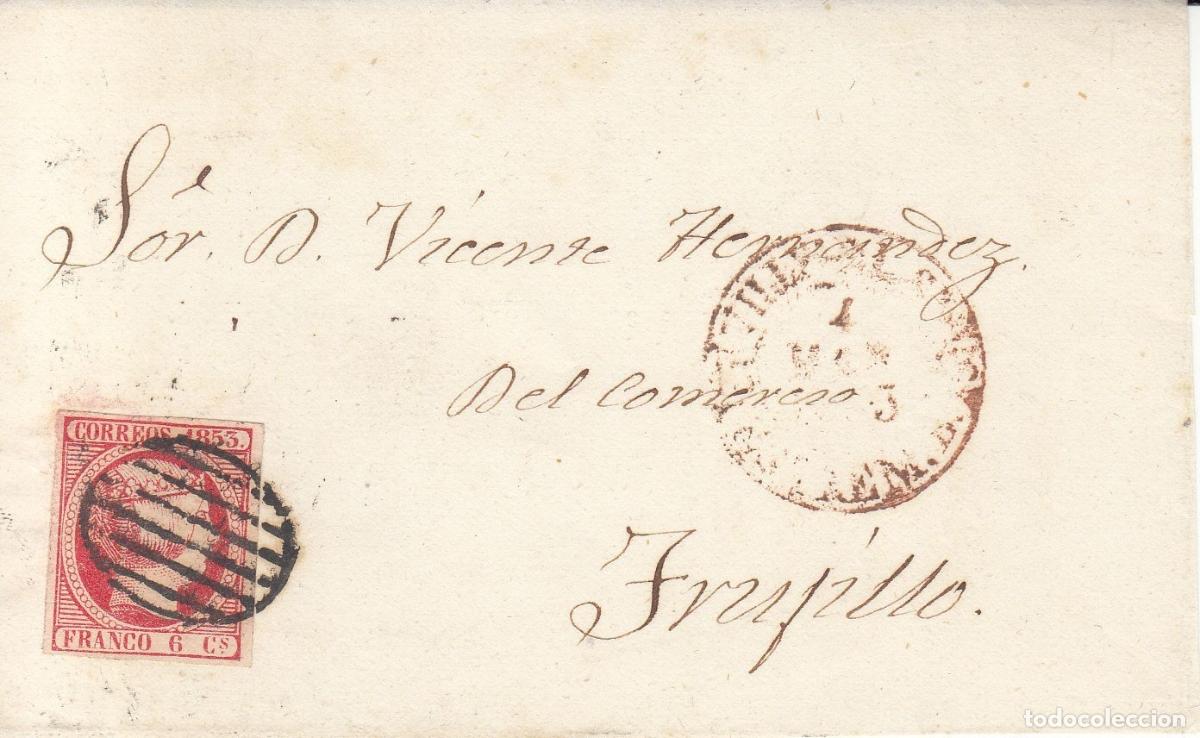 Sor. D. Vicente Hernandez.
Del Comercio
Trujillo.
CORREOS 1853.
FRANCO 6 Cs
1
EXTREM. B.
todocoleccion